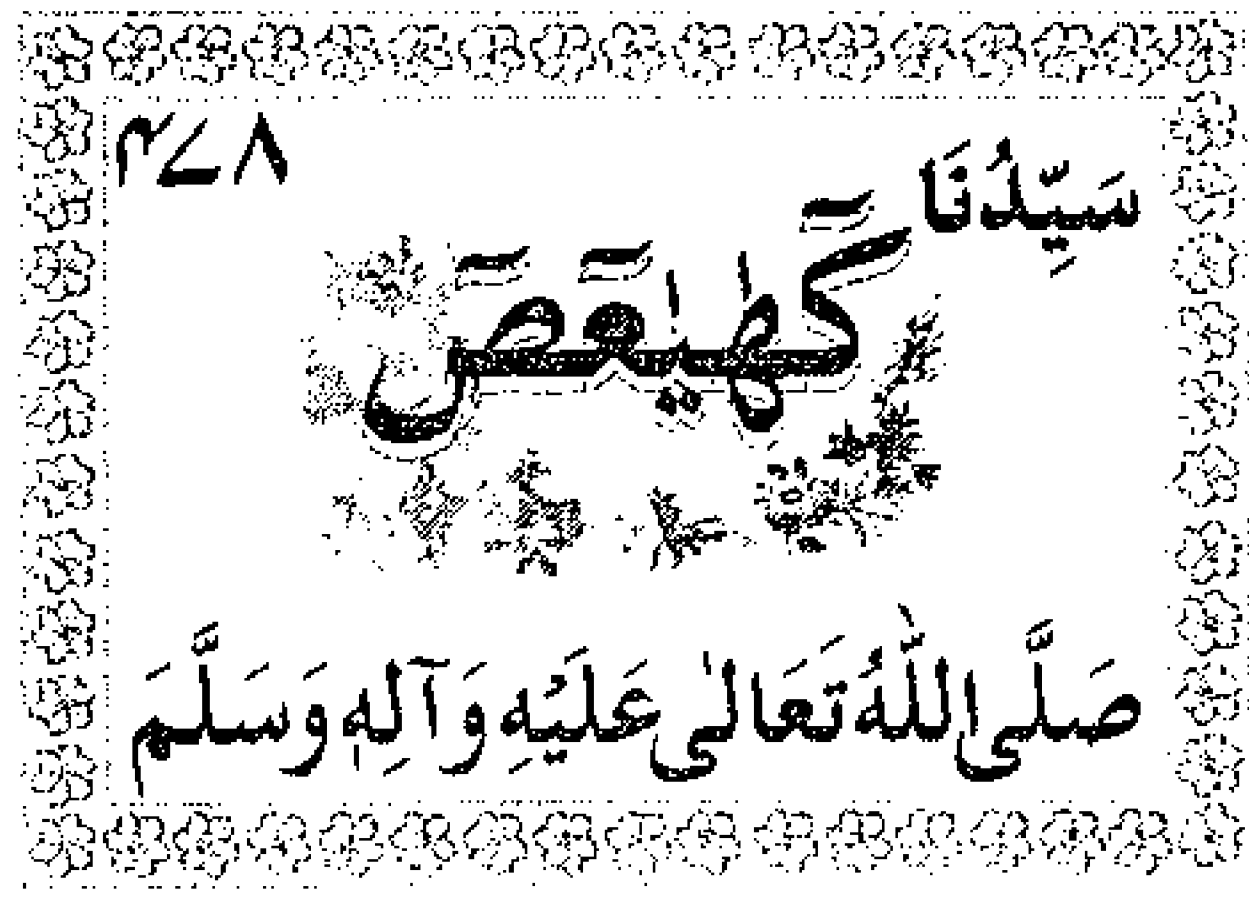 سَيِّدُنَا ۴۷۸
كٓهٰيٰعٓصٓ
صَلَّى اللّٰهُ تَعَالٰى عَلَيْهِ وَآلِهٖ وَسَلَّمَ